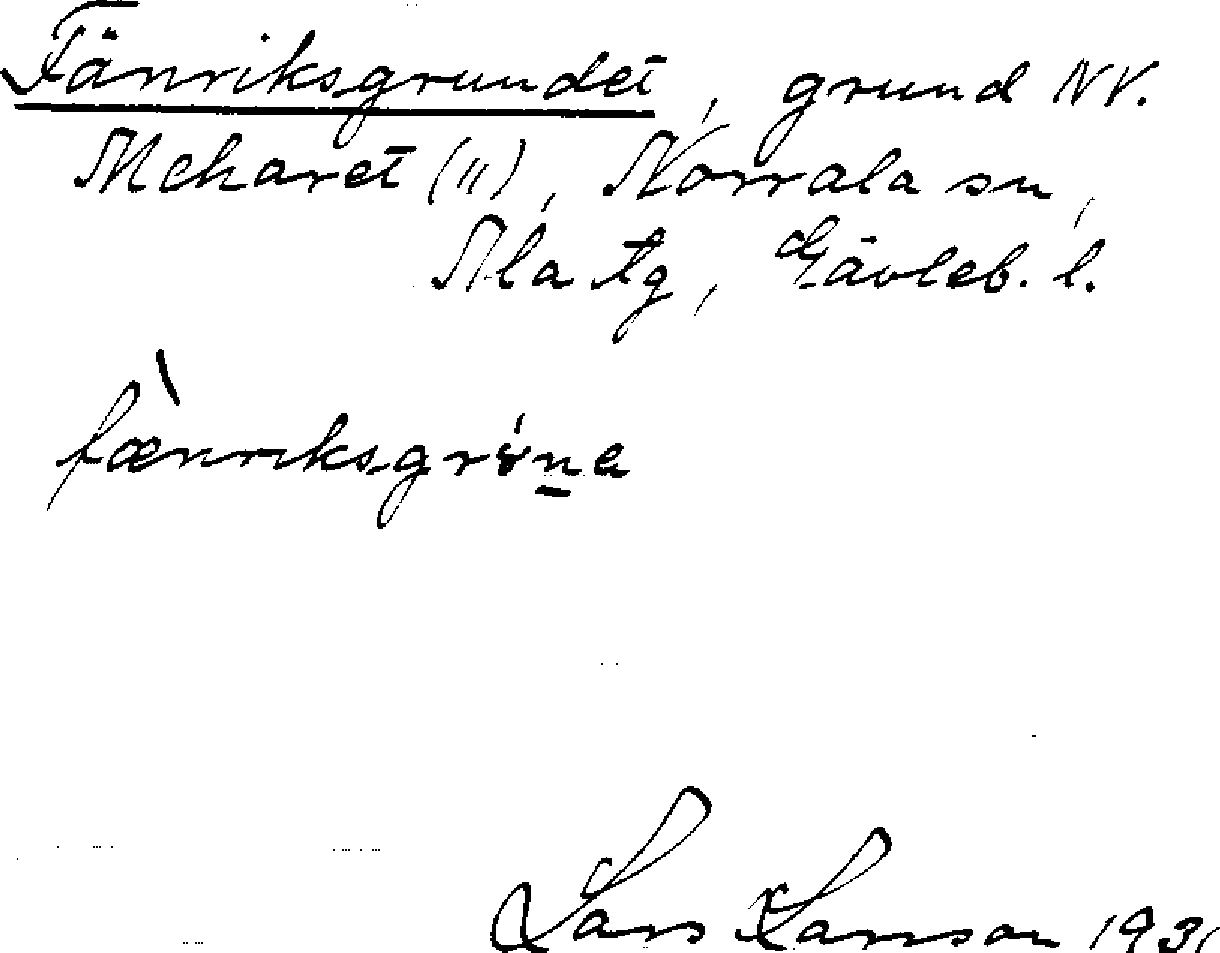 Fänriksgrundet, grund NV.
Mckaret (11), Norrala sn,
Ala tg, Gävleb. l.
fænriksgrɤna
Lars Larsson 1931